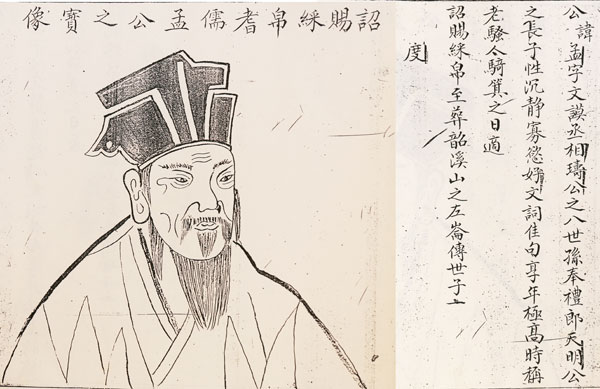 公諱孟字文謨丞相璹公之八世孫奉禮郎天明公
之長子性沉静寡慾好文詞佳句享年極高時稱
老騷人騎箕之日適
詔賜綵帛至葬韶溪山之左崙傳世子士
度
詔賜綵帛耆儒孟公之寶像